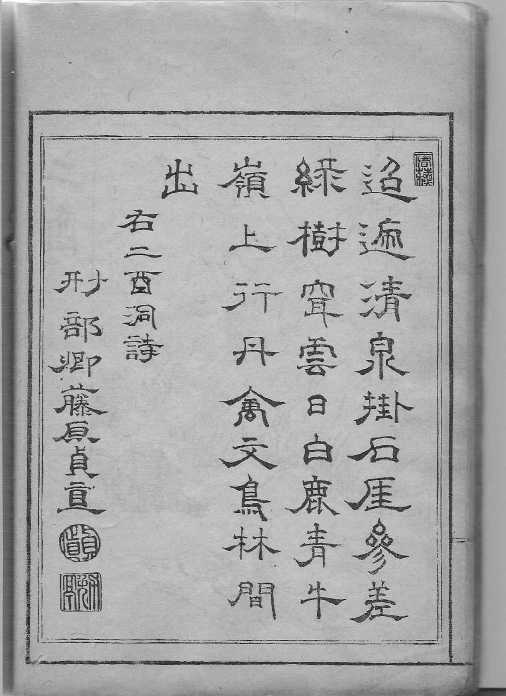 迢遞清泉掛石厓參差
綠樹聳雲日白鹿青牛
嶺上行丹禽文鳥林間
出
右二酉洞詩
刑部卿藤原貞直